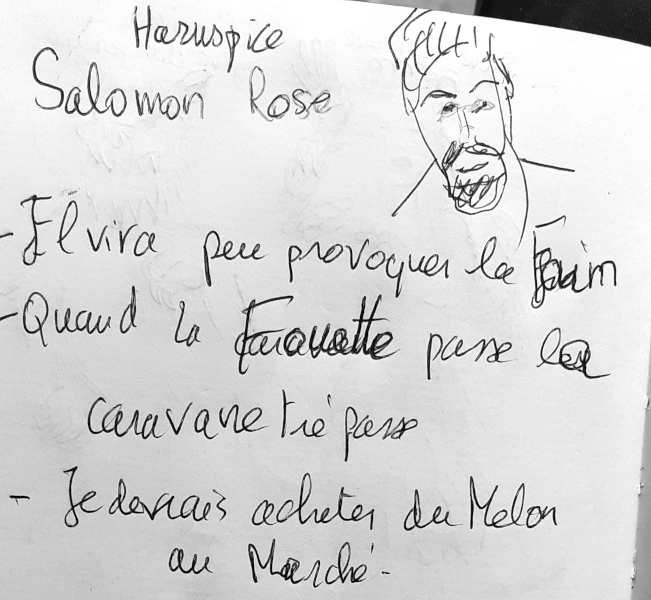 Haruspice
Salomon Rose
- Elvira peu provoquer la Faim
- Quand la passe la
caravane trépasse
- Je devrais acheter du Melon
au Marché.